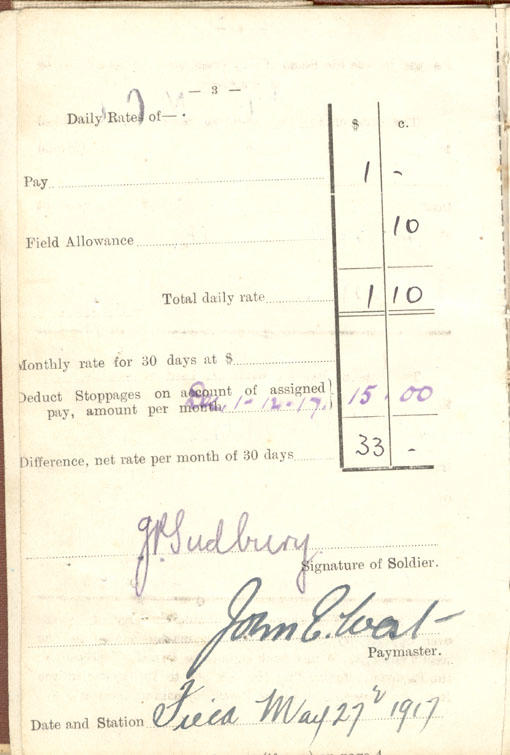 — 3 —
Daily Rates of—
$ c.
Pay 1 -
Field Allowance 10
Total daily rate 1 10
Monthly rate for 30 days at $
Deduct Stoppages on account of assigned
pay, amount per month 1-12-17. 15.00
Difference, net rate per month of 30 days 33 -
J.P. Sudbury
Signature of Soldier.
John E. West
Paymaster.
Date and Station Field May 27 1917